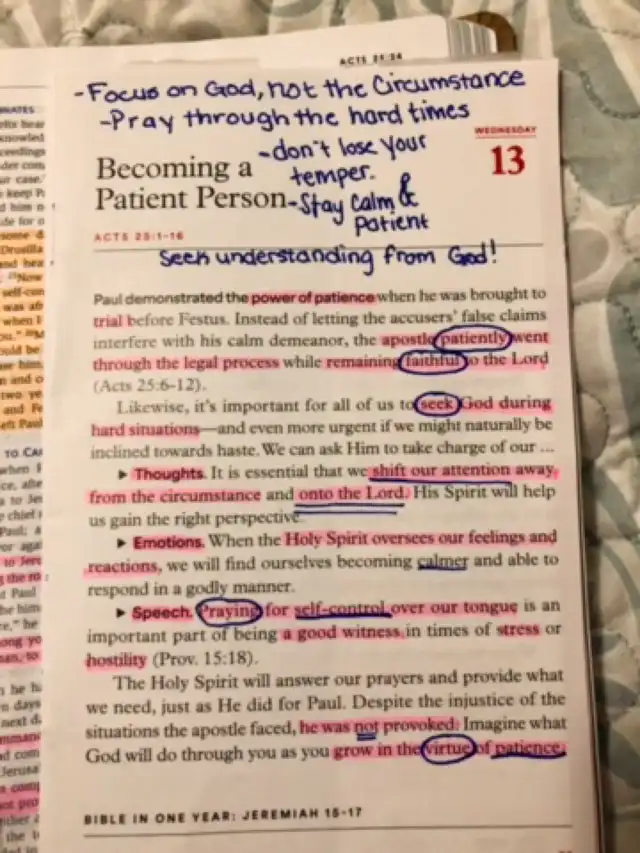 ACTS 25:24
-Focus on God, not the Circumstance
-Pray through the hard times
WEDNESDAY
13
-don't lose your
temper.
-Stay calm &
patient
Becoming a
Patient Person
ACTS 25:1-16
Seek understanding from God!
Paul demonstrated the power of patience when he was brought to
trial before Festus. Instead of letting the accusers' false claims
interfere with his calm demeanor, the apostle patiently went
through the legal process while remaining faithful to the Lord
(Acts 25:6-12).
Likewise, it's important for all of us to seek God during
hard situations—and even more urgent if we might naturally be
inclined towards haste. We can ask Him to take charge of our ...
▸ Thoughts. It is essential that we shift our attention away
from the circumstance and onto the Lord. His Spirit will help
us gain the right perspective.
▸ Emotions. When the Holy Spirit oversees our feelings and
reactions, we will find ourselves becoming calmer and able to
respond in a godly manner.
▸ Speech. Praying for self-control over our tongue is an
important part of being a good witness in times of stress or
hostility (Prov. 15:18).
The Holy Spirit will answer our prayers and provide what
we need, just as He did for Paul. Despite the injustice of the
situations the apostle faced, he was not provoked. Imagine what
God will do through you as you grow in the virtue of patience.
BIBLE IN ONE YEAR: JEREMIAH 15-17